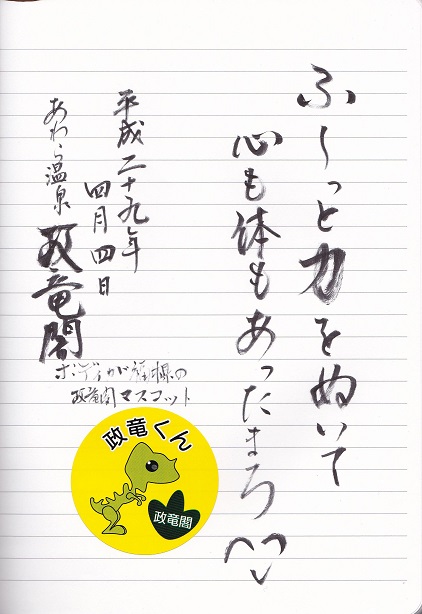 ふ〜っと力をぬいて
心も体もあったまろ♡
平成二十九年
四月四日
あわら温泉 政竜閣
ボディが福井県の
政竜閣マスコット
政竜くん
政竜閣